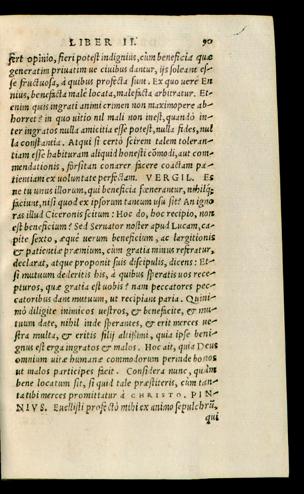 LIBER II. 90
fert opinio, fieri potest indignius, cùm beneficia quæ
generatim priuatim ue ciuibus dantur, ijs soleant es-
se fructuosa, à quibus profecta sunt. Ex quo uerè En
nius, benefacta malè locata, malefacta arbitratur. Et-
enim quis ingrati animi crimen non maximopere ab-
horret? in quo uitio nil mali non inest, quando in-
ter ingratos nulla amicitia esse potest, nulla fides, nul
la constantia. Atqui si certò scirem talem toleran-
tiam esse habituram aliquid honesti cõmodi, aut com
mendationis, forsitan conarer facere coactam pa-
tientiam ex voluntate perfectam. VERGIL. Es
ne tu unus illorum, qui beneficia fænerantur, nihilq;
faciunt, nisi quod ex ipsorum tantum usu sit? An igno
ras illud Ciceronis scitum: Hoc do, hoc recipio, non
est beneficium? Sed Seruator noster apud Lucam, ca-
pite sexto, æquè uerum beneficium, ac largitionis
& patientiæ præmium, cùm gratia minus refertur,
declarat, atque proponit suis discipulis, dicens: Et
si mutuum dederitis his, à quibus speratis uos rece-
pturos, quæ gratia est uobis? nam peccatores pec-
catoribus dant mutuum, ut recipiant paria. Quini-
mò diligite inimicos uestros, & benefacite, & mu-
tuum date, nihil inde sperantes, & erit merces ue-
stra multa, & eritis filij altissimi, quia ipse beni-
gnus est erga ingratos & malos. Hoc ait, quia Deus
omnium uitæ humanæ commodorum perinde bonos
ut malos participes facit. Considera nunc, quàm
bene locatum sit, si quid tale præstiteris, cùm tan-
ta tibi merces promittatur à CHRISTO. PIN-
NIVS. Euellisti profectò mihi ex animo sepulchrũ,
qui